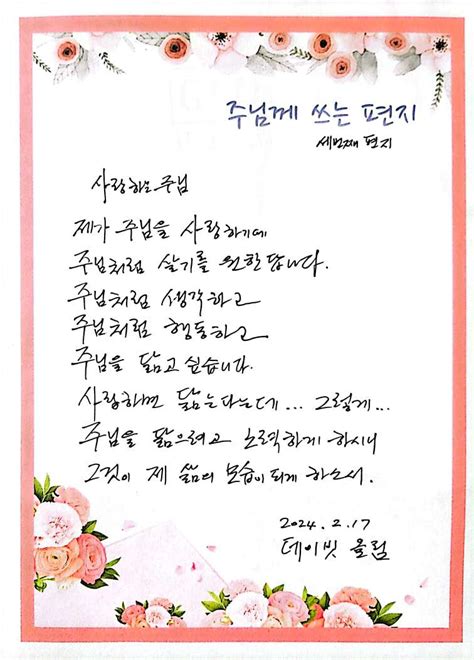 주님께 쓰는 편지
세번째 편지
사랑하는 주님
제가 주님을 사랑하기에
주님처럼 살기를 원한답니다.
주님처럼 생각하고
주님처럼 행동하고
주님을 닮고 싶습니다.
사랑하면 닮는다는데... 그렇게...
주님을 닮으려고 노력하게 하시니
그것이 제 삶의 모습이 되게 하소서.
2024. 2. 17
데이빗 올림